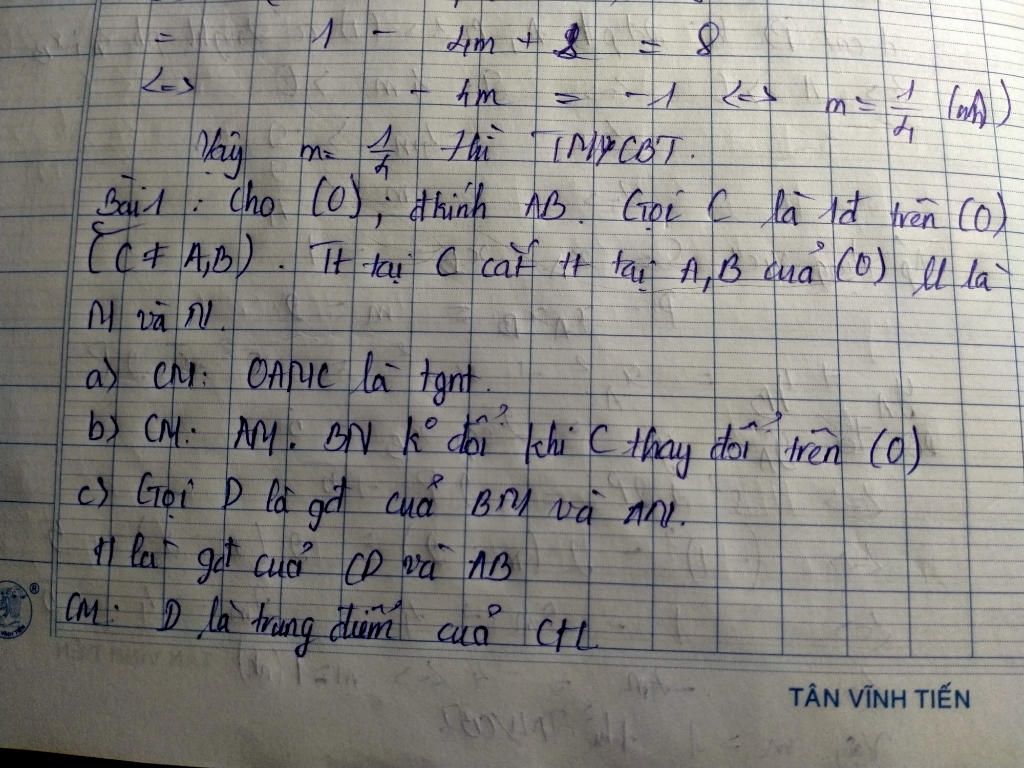 = 1 - 4m + 8 = 8
<=> - 4m = -1 <=> m = 1/4 (nh)
Vậy m = 1/4 thì TMYCBT.
Bài 1 : Cho (O), đkính AB. Gọi C là 1đ trên (O)
(C ≠ A,B). Tt tại C cắt tt tại A,B của (O) lll là
M và N.
a) CM: OAMC là tgnt.
b) CM: AM . BN k° đổi khi C thay đổi trên (O)
c) Gọi D là gđ của BM và AN.
H là gđ của CD và AB
CM: D là trung điểm của CH
TÂN VĨNH TIẾN